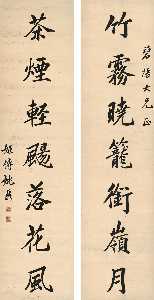 碧大兄正
竹霧曉籠銜嶺月
茶煙輕颺落花風
姬傳姚鼐